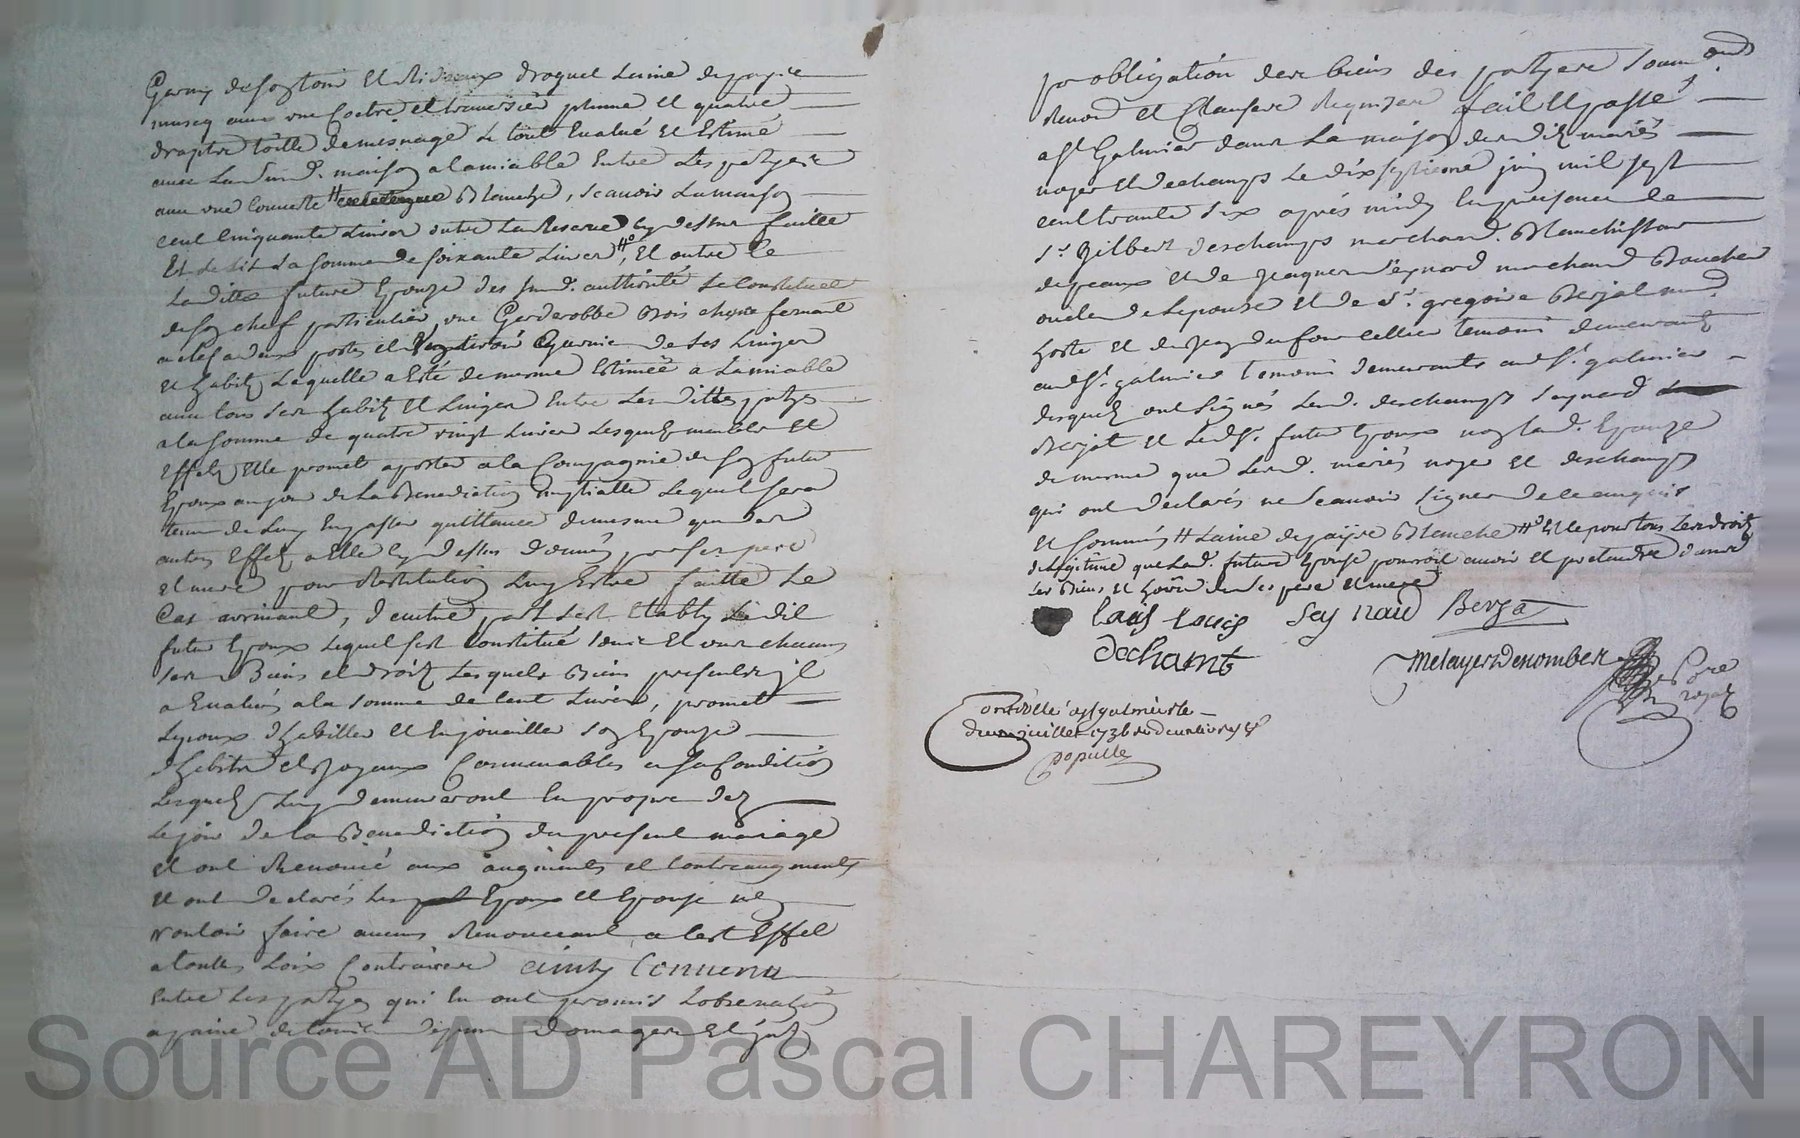 Garny de son tour et Rideaux draquet Laine de payie
musq avec une Coetre et traversier plume et quatre
draptz toille de mesnage Le tout Evalué et Estimé
avec La Susd. maison a lamiable Entre Les partyes
avec une Couverte # Blanche, scavoir La maison
cent Cinquante Livres outre La Reserve cy dessus faitte
Et Le Lit La somme de soixante Livres #o, Et outre Ce
Laditte future Epouze des susd. authorité se Constitue
de son chef particulier une Garderobbe Bois chesne fermant
a clef a deux portes et tiroir Garnie de ses Linges
et habitz Laquelle a Esté de mesme Estimée a Lamiable
avec tous ses habitz et Linges Entre Lesdittes partyes
a la somme de quatre vingt Livres Lesquels meubles et
Effetz Elle promet aporter a la Compagnie de son futur
Epoux au jour de La Benediction nuptialle Lequel sera
tenu de Luy En passer quittance de mesme que des
autres Effetz a Elle cy dessus donnés par ses pere
et mere pour Restitution Luy Estre faitte Le
Cas arrivant, d'autre part s'est Etably Ledit
futur Epoux Lequel s'est Constitué tous et uns chacuns
ses Biens et droitz Lesquels Biens presents il
a Evalués a la somme de Cent Livres, promet
Lepoux d'habiller et Enjouailler son Epouze
d'habits et Joyaux Convenables a sa Condition
Lesquels Luy demeureront En propre dez
Le jour de la Benediction du present mariage
et ont Renoncé aux augments et Contreaugments
et ont declarés Les Epoux et Epouse n'en
vouloir faire aucuns Renonceant a cest Effet
a toutes Loix Contraires ainsy Convenu
Entre Les partyes qui En ont promis Lobservation
a paine de tous depens domages et jntz
par obligation des biens des partyes soum ons
Renon et Clauses Requises fait et passé
a St Galmier dans La maison desdits mariés
noyer et dechamps Le dix septieme juin mil sept
cent trante six aprés midy En presence de
sr Gilbert deschamps marchand Blanchisseur
de peaux et de Jacques Seynard marchand Boucher
oncle de Lepouse et de sr gregoire Berjat md
hoste et de temoins demeurants
aud St galmier temoins demeurants aud St galmier
desquels ont signés Lesd. deschamps Seynard
Berjat et Ledit futur Epoux non Lad. Epouze
de mesme que Lesd. mariés noyer et deschamps
qui ont declarés ne scavoir signer de ce enquis
et sommés # Laine de payie Blanche #o Et ce pour tous Les droitz
de Legitime que Lad. future Epouse pourroit avoir et pretendre dans
les Biens et hoirie de ses pere et mere
Louis Louis Seynaud Berja
dechamt
Metayer Denomber
Controllé a St galmier le
deux juillet 1736 Rd deux livres
Populle